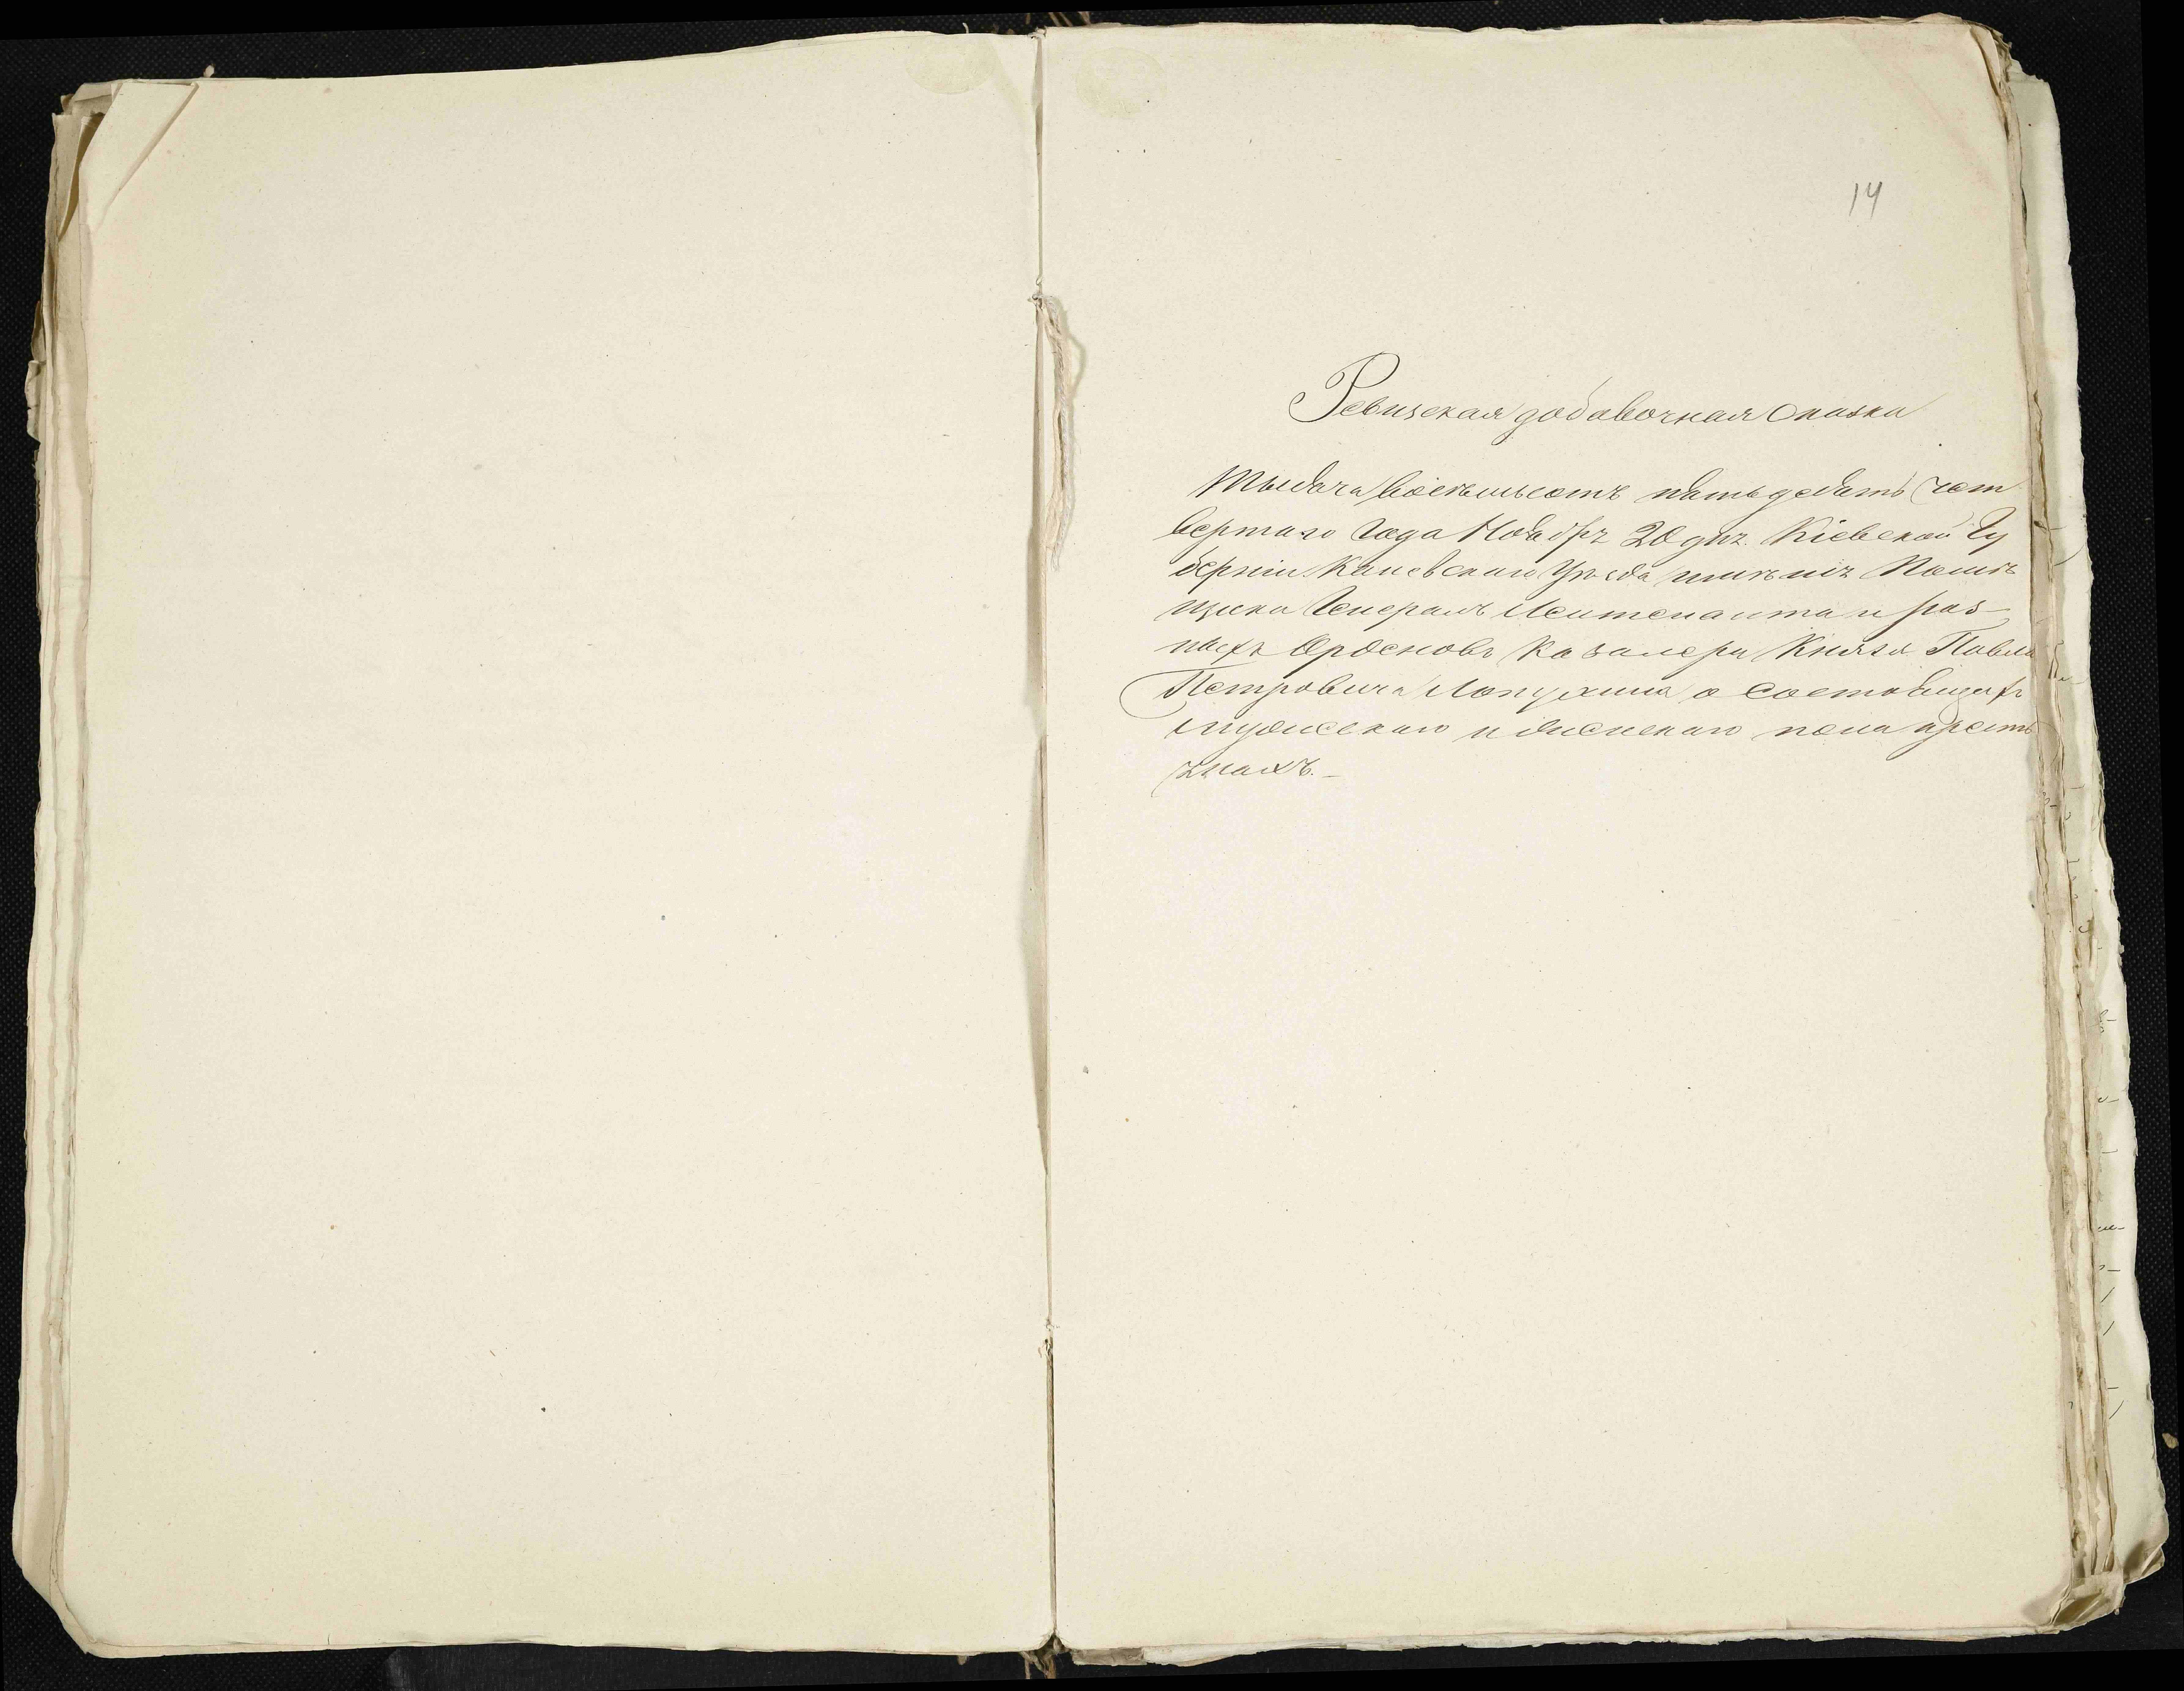 14
Ревизская добавочная Сказка
Тысяча восемьсотъ пятьдесятъ чет
вертаго Года Ноября 20 дня. Кіевской Гу
берніи Каневскаго Уѣзда имѣнія Помѣ
щика Генералъ Лейтенанта и раз
ныхъ Орденовъ Кавалера Князя Павла
Петровича Лопухина о состоящихъ
мужескаго и женскаго пола кресть
янахъ.